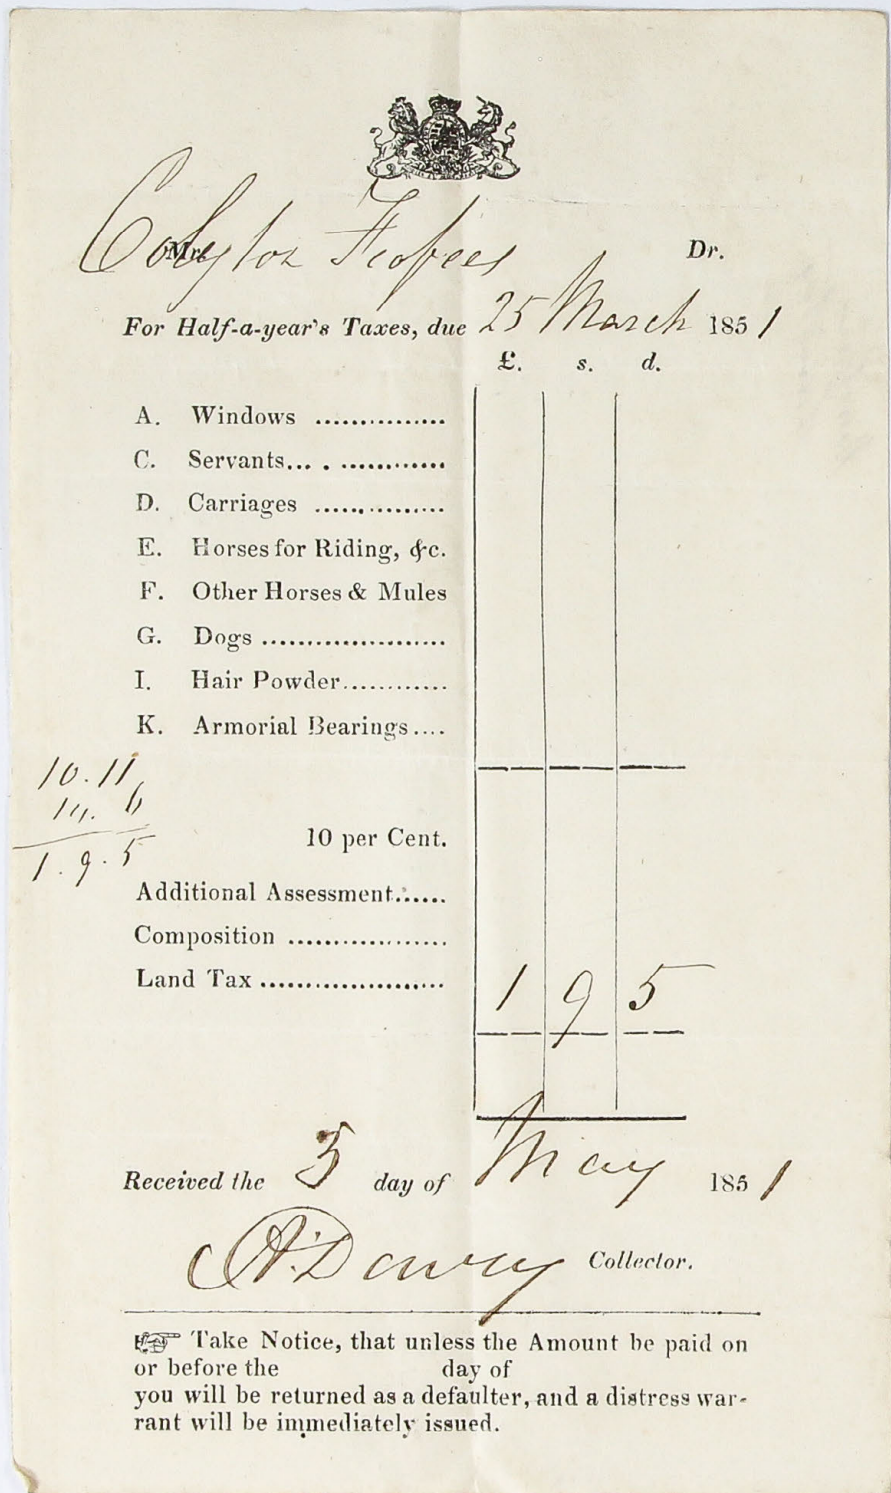 Mr. Colyton Feofees Dr.
For Half-a-year's Taxes, due 25 March 1851
£. s. d.
A. Windows ...............
C. Servants... . ............
D. Carriages ...............
E. Horses for Riding, &c.
F. Other Horses & Mules
G. Dogs .....................
I. Hair Powder............
K. Armorial Bearings....
10. 11
6
1. 9. 5
10 per Cent.
Additional Assessment......
Composition ..................
Land Tax ..................... 1 9 5
Received the day of May 1851
Collector.
☞ Take Notice, that unless the Amount be paid on
or before the day of
you will be returned as a defaulter, and a distress war-
rant will be immediately issued.